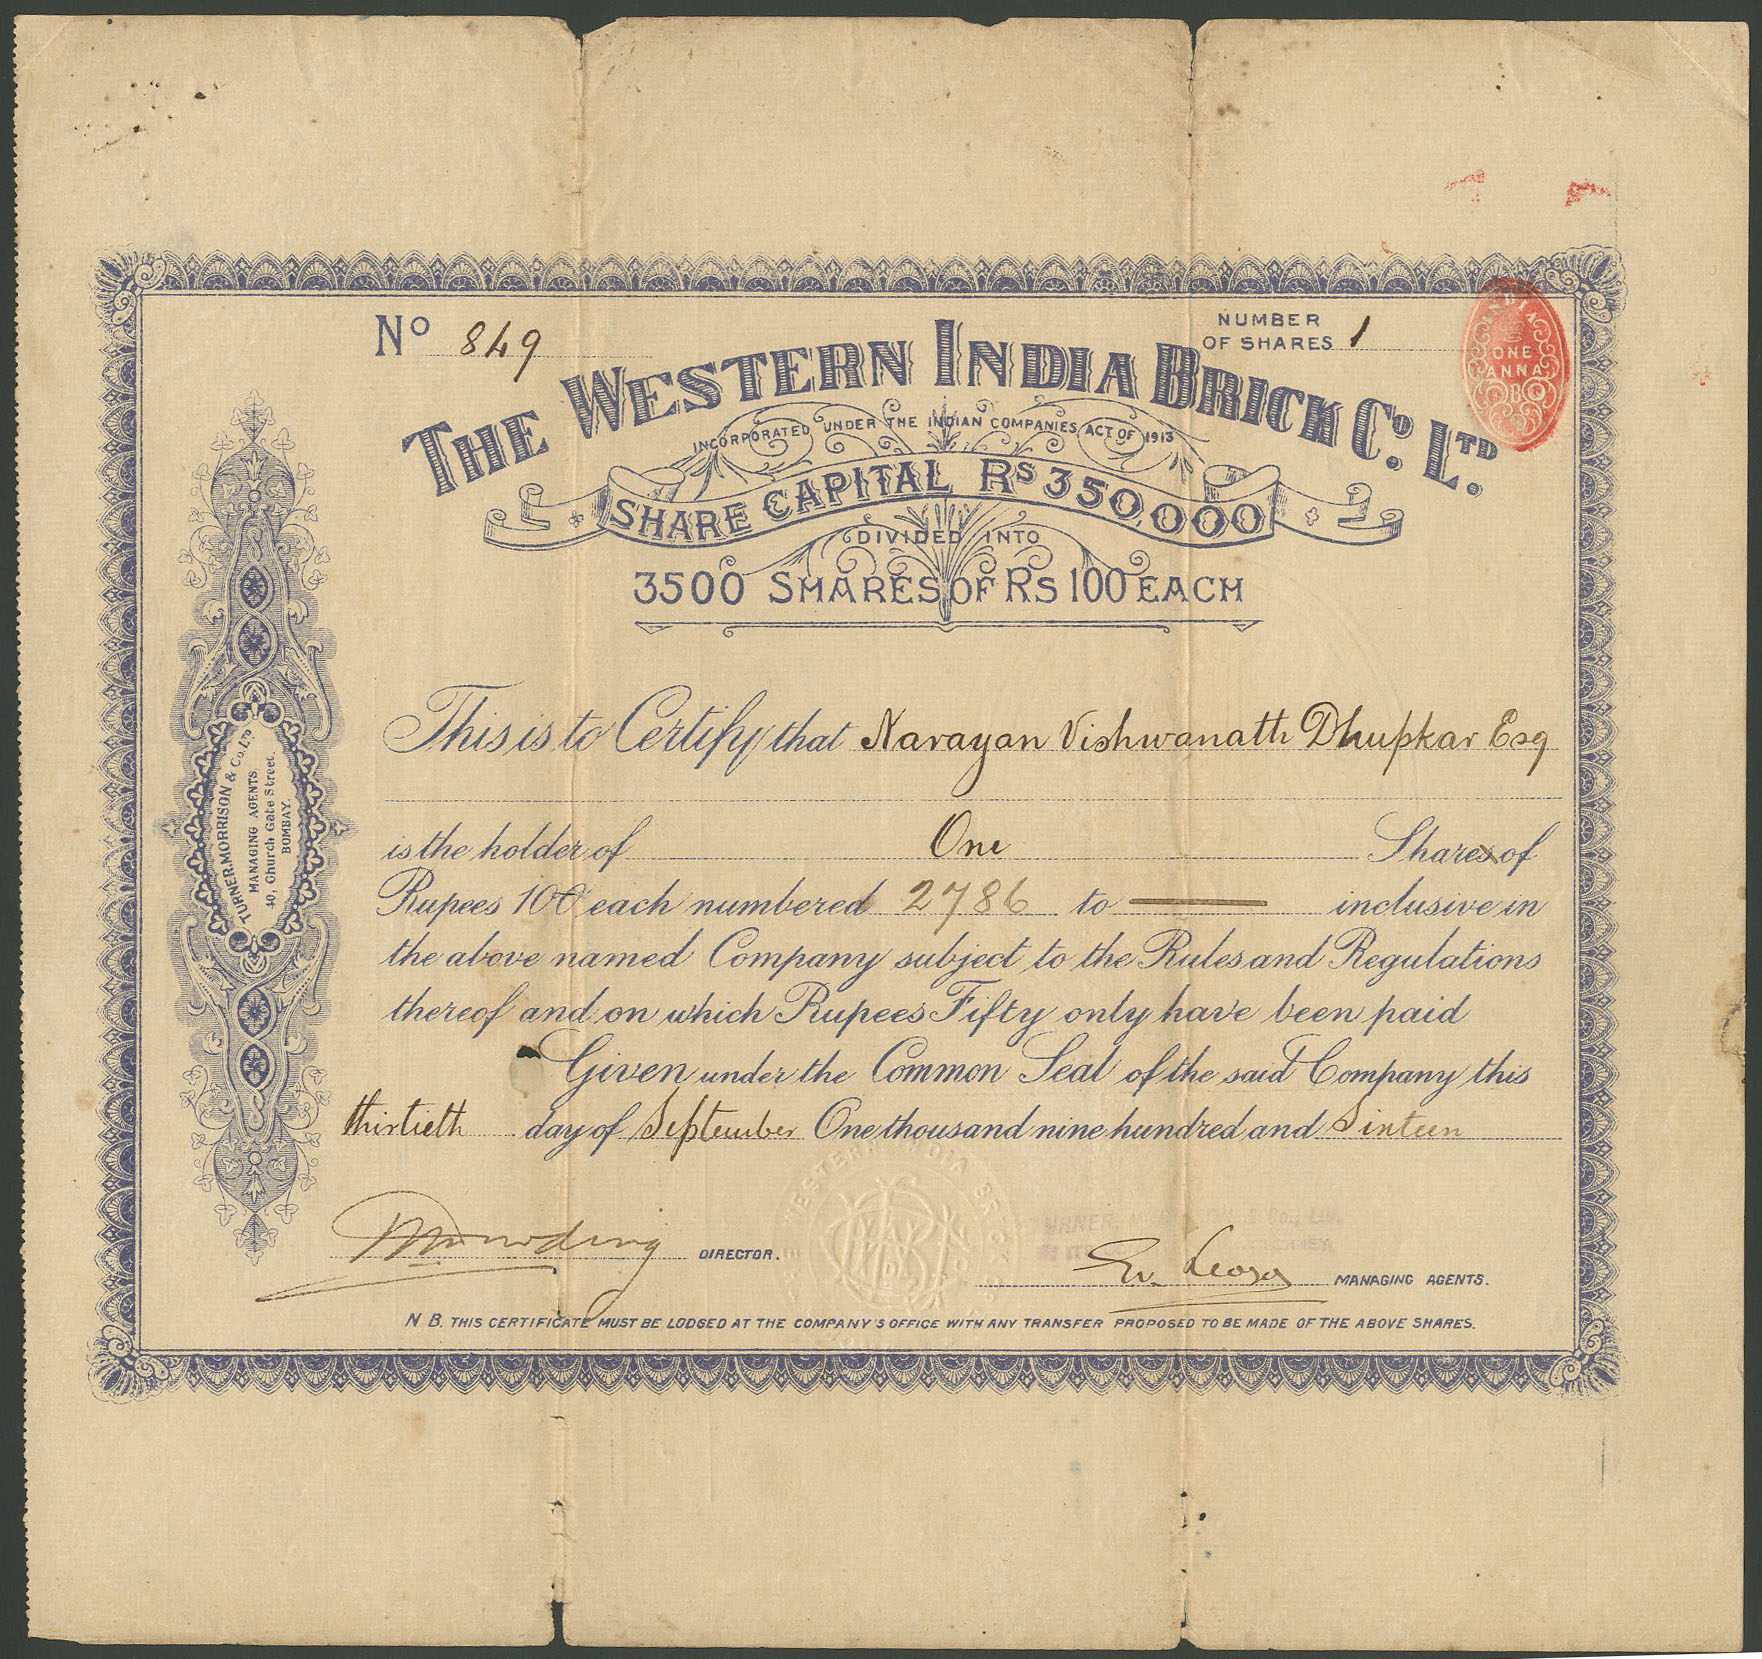 No 849
NUMBER
OF SHARES 1
INDIA
ONE
ANNA
THE WESTERN INDIA BRICK Co. LTD.
INCORPORATED UNDER THE INDIAN COMPANIES ACT OF 1913
SHARE CAPITAL Rs 350,000
DIVIDED INTO
3500 SHARES OF Rs 100 EACH
TURNER, MORRISON & Co. LTD
MANAGING AGENTS.
40, Church Gate Street.
BOMBAY.
This is to Certify that Narayan Vishwanath Dhupkar Esq
is the holder of One Shares of
Rupees 100 each numbered 2786 to — inclusive in
the above named Company subject to the Rules and Regulations
thereof and on which Rupees Fifty only have been paid
Given under the Common Seal of the said Company this
thirtieth day of September One thousand nine hundred and Sixteen
DIRECTOR.
MANAGING AGENTS.
N B. THIS CERTIFICATE MUST BE LODGED AT THE COMPANY'S OFFICE WITH ANY TRANSFER PROPOSED TO BE MADE OF THE ABOVE SHARES.